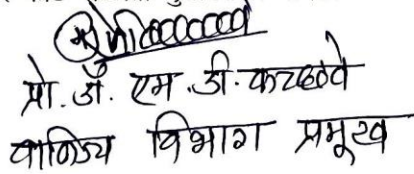 प्रो. डॉ. एम. डी. कच्छवे
वाणिज्य विभाग प्रमुख